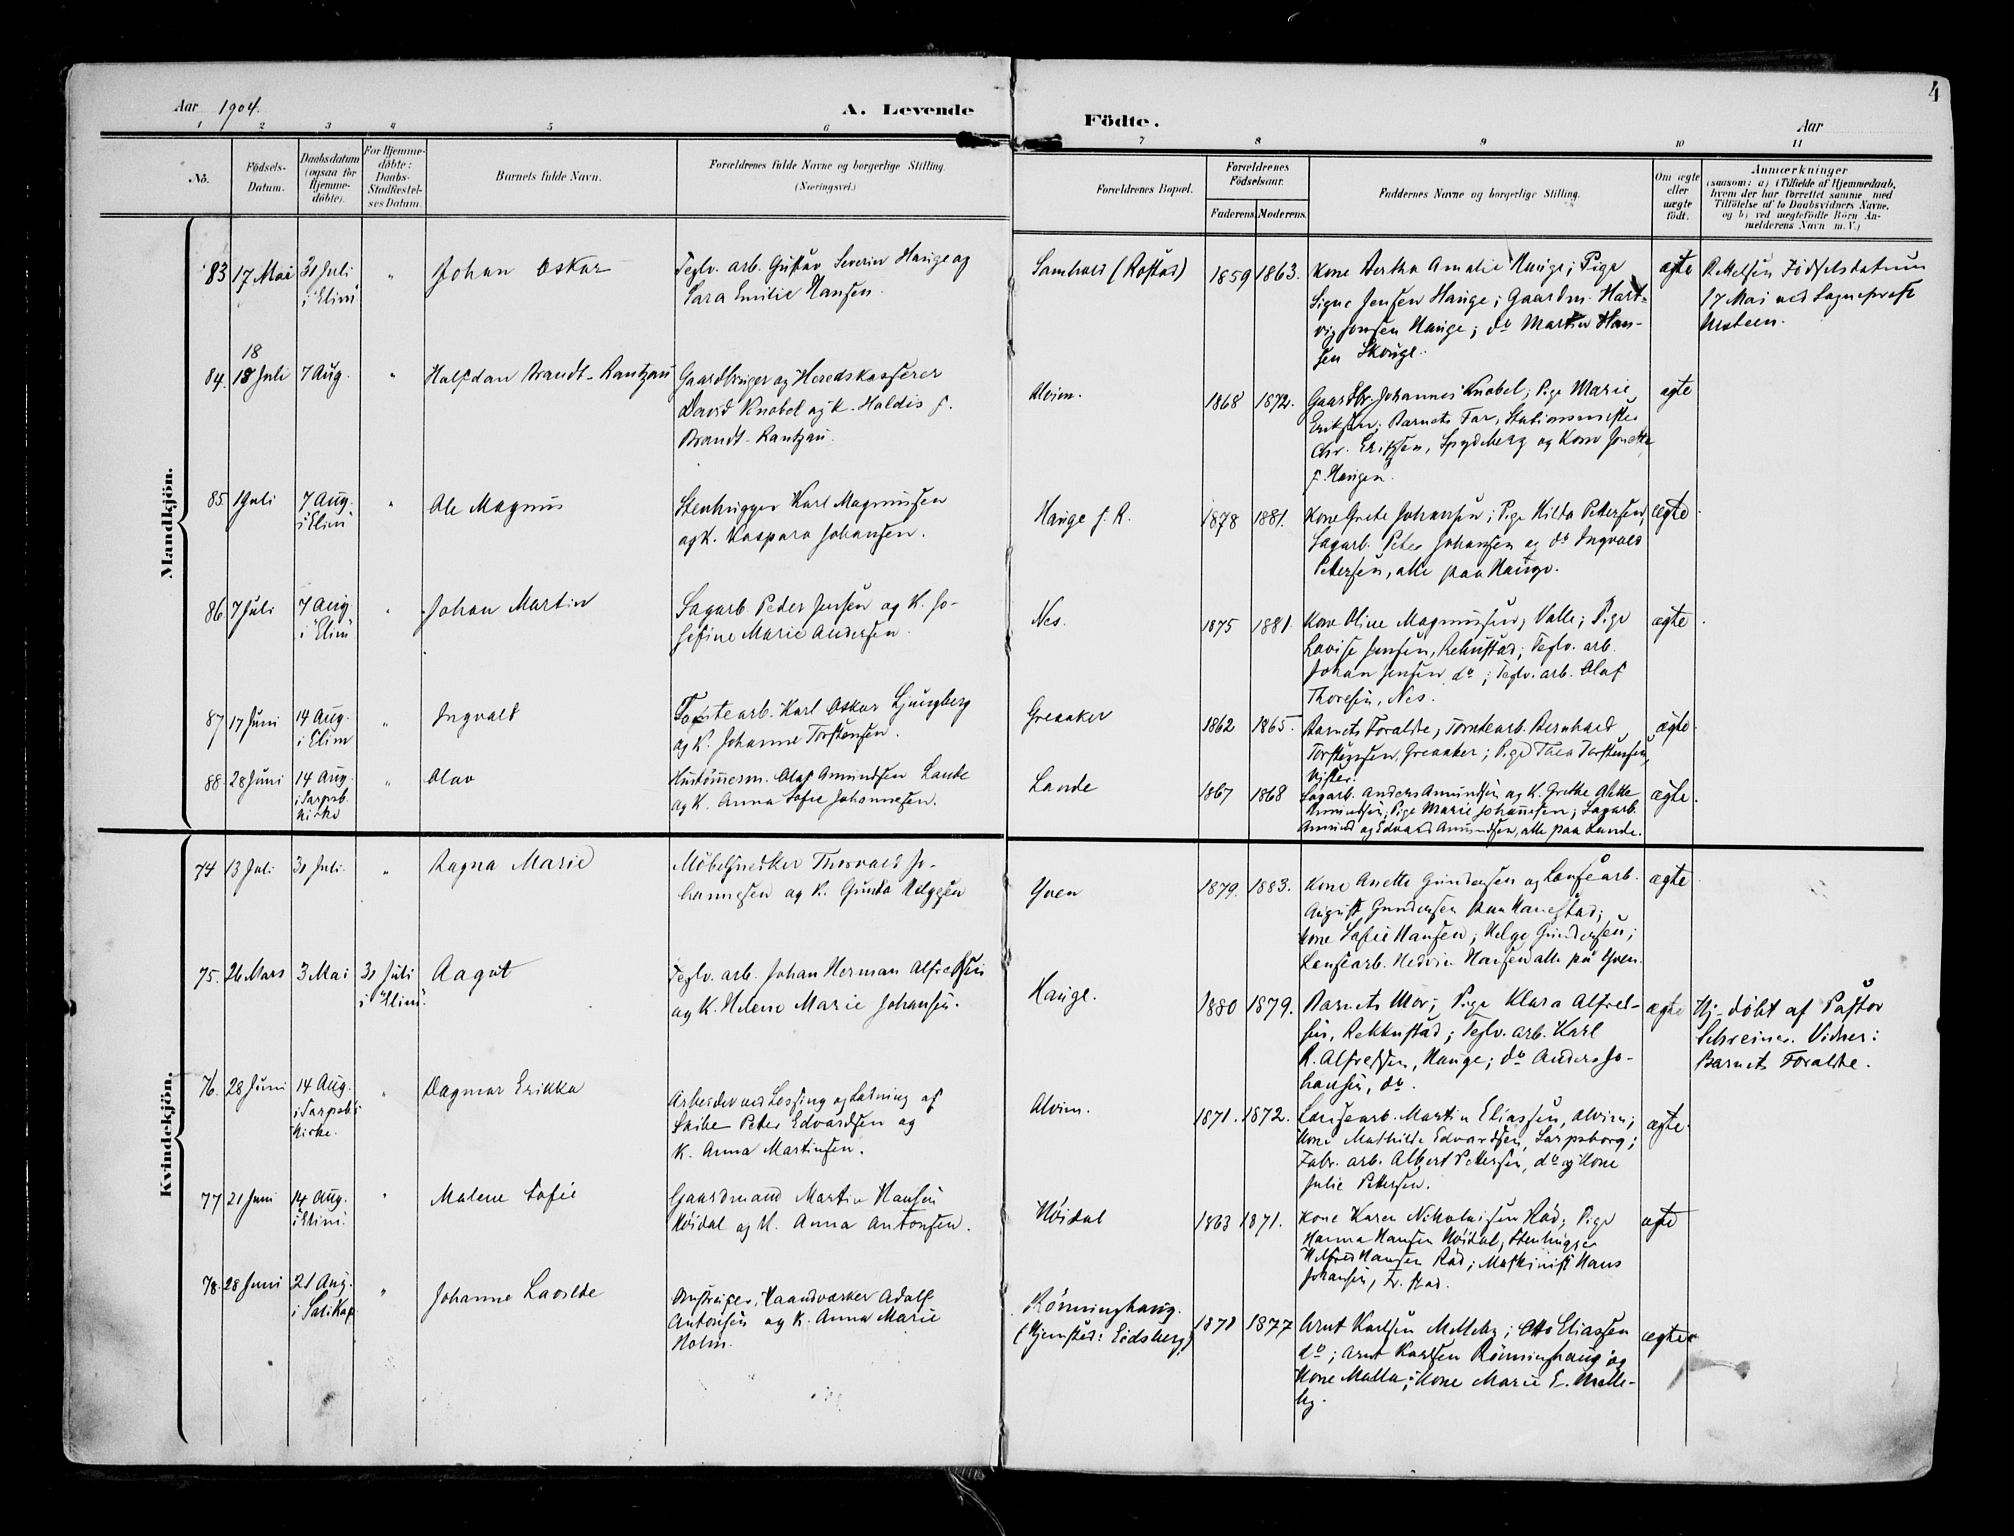 4
Aar 1904.
A. Levende
Födte.
Aar
1 2 3 4 5 6 7 8 9 10 11
No.
Födsels-
Datum.
Daabsdatum
(ogsaa for
Hjemme-
döbte).
For Hjemme-
döbte:
Daabs-
Stadfæstel-
ses Datum.
Barnets fulde Navn.
Forældrenes fulde Navne og borgerlige Stilling.
(Næringsvei.)
Forældrenes Bopæl.
Forældrenes
Födselsaar.
Faderens. Moderens.
Faddernes Navne og borgerlige Stilling.
Om ægte
eller
uægte
født.
Anmærkninger
(saasom: a) i Tilfælde af Hjemmedaab,
hvem der har forrettet samme med
Tilföielse af to Daabsvidners Navne,
og b) ved uægtefödte Börn An-
melderens Navn m. V.)
Mandkjön.
83 17 Mai 31 Juli
i "Elim"
" Johan Oskar
Teglv. arb. Gustav Severin Hauge og
Sara Emilie Hansen.
(Rostad) 1859 1863.
Kone Bertha Amalie Hauge; Pige
Signe Jensen Hauge; Gaardm. Hart-
vig Jensen Hauge; do Martin Han-
sen Skouge.
ægte
Rettelsen Födselsdatum
17 Mai ved Sogneprest
18
84. 18 Juli 7 Aug. " Halfdan Brandt-Rantzau
Gaardbruger og Heredskasserer
David Knobel og K. Haldis f.
Brandt-Rantzau.
Alvim. 1868 1872.
Gaardbr. Johannes Knobel; Pige Marie
Eriksen; Barnets Far, Stationsmester
Chr. Eriksen, Spydeberg og Kone Jonette
f. Haugen.
ægte
85. 1 Juli 7 Aug.
i "Elim"
" Ole Magnus
Stenhugger Karl Magnussen
og K. Kaspara Johansen.
Hauge f. R. 1878 1881.
Kone Grete Johansen; Pige Hilda Pettersen,
Sagarb. Peter Johansen og do Ingvald
Petersen, alle paa Hauge.
ægte
86. 7 Juli 7 Aug.
i "Elim"
" Johan Martin
Sagarb. Peder Jensen og K. Jo-
sefine Marie Andersen.
Nes. 1875 1881.
Kone Oline Magnussen, Valle; Pige
Lovise Jensen, Rekustad; Teglv. arb.
Johan Jensen do; Teglv. arb. Olaf
Thoresen, Nes.
ægte
87 17 Juni 14 Aug.
i Elim
" Ingvald
Tomtearb. Karl Oskar Ljungberg
og K. Johanne Torstensen.
Greaaker 1862 1865.
Barnets Forældre, Tomtearb. Bernhard
Torstensen, Greaaker; Pige Thea Torstensen,
ægte
88. 28 Juni 14 Aug.
i Sarpsb.
kirke
" Olav
Hustømmerm. Olaf Amundsen Lande
og K. Anna Sofie Johannesen.
Lande 1867 1868
Sagarb. Anders Amundsen og K. Grethe Alette
Amundsen, Pige Marie Johannesen; Sagarb.
Amund og Edvard Amundsen, alle paa Lande.
ægte.
Kvindekjön.
74 13 Juli 31 Juli. " Ragna Marie
Möbelsnedker Thorvald Jo-
hannesen og K. Gunda Helgesen
Yven 1879. 1883.
Kone Anette Gundersen og Lensearb.
August Gundersen paa Hanestad;
Kone Sofie Hansen; Helge Gundersen;
Lensearb. Hedvin Hansen alle på Yven.
ægte
75. 26 Mars 3 Mai 31 Juli
i "Elim".
Aagot
Teglv. arb. Johan Herman Alfredsen
og K. Helene Marie Johansen.
Hauge. 1880 1879.
Barnets Mor; Pige Klara Alfred-
sen, Rekkustad; Teglv. arb. Karl
R. Alfredsen, Hauge; do Anders Jo-
hansen, do.
ægte
Hj. döbt af Pastor
Schreiner. Vidner:
Barnets Forældre.
76. 28 Juni 14 Aug.
i Sarpsb.
Kirke.
" Dagmar Erikka
Arbeider ved Lossing og Ladning af
Skibe Peter Edvardsen og
K. Anna Martinsen.
Alvim. 1871. 1872.
Lensearb. Martin Eliassen, Alvim;
Kone Mathilde Edvardsen, Sarpsborg;
Fabr. arb. Albert Pettersen, do og Kone
Julie Pettersen.
ægte.
77 21 Juni 14 Aug.
i "Elim".
" Malene Sofie
Gaardmand Martin Hansen
Höidal og K. Anna Antonsen.
Höidal 1863 1871.
Kone Karen Nikolaisen Rød; Pige
Hanna Hansen Höidal, Stenhugger
Hilfred Hansen Röd; Maskinist Hans
Johansen, Fr. stad.
ægte
78. 28 Juni 21 Aug.
" Johanne Lovilde
Anstryger, Haandværker Adolf
Antonsen og K. Anna Marie
Holm.
Rönninghaug.
(Hjemsted: Eidsberg) 1878 1877
Arnt Karlsen Melleby; Otto Eliassen
do; Arnt Karlsen Rönninghaug og
Kone Malla; Kone Marie E. Melle-
by.
ægte